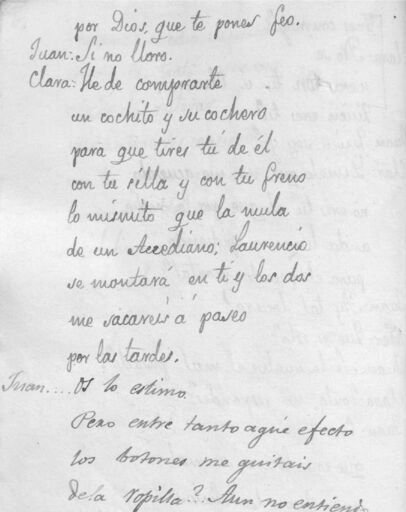 por Dios, que te pones feo.
Juan: Si no lloro.
Clara: He de comprarte
un cochito y su cochero
para que tires tú de él
con tu silla y con tu freno
lo mismito que la mula
de un Arcediano; Laurencio
se montará en ti y los dos
me sacareis á paseo
por las tardes.
Juan.... Os lo estimo
Pero entre tanto aqué efecto
los botones me quitais
dela ropilla? Aun no entiendo